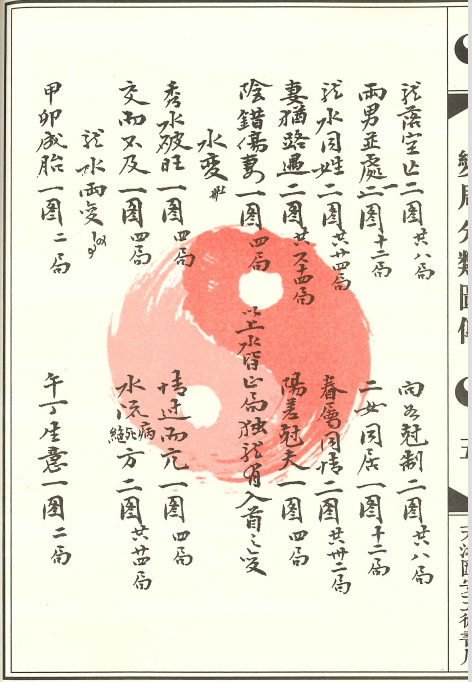 龙落空亡二图共八局 向尅制二图共八局
兩男並處二图十二局 二女同居一图十二局
龙水同姓二图共廿四局 眷屬同情二图共卅二局
妻猶路遇二图共六十四局 陽差尅夫一图四局
陰錯傷妻一图四局 以上水皆正局独龙有入首之变
水变
秀水破旺一图四局 情过而亢一图四局
交而不及一图四局 水流病死絕方二图共廿四局
龙水兩变
甲卯成胎一图二局 午丁生意一图二局